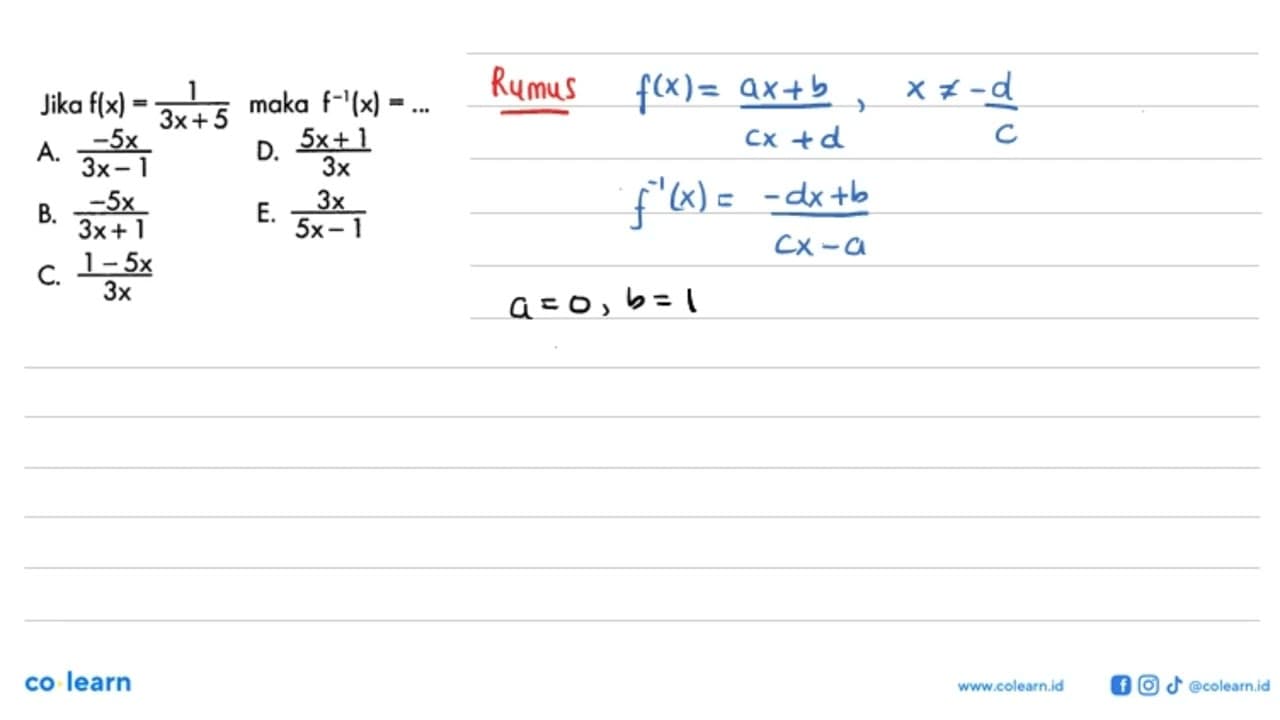 Jika f(x) = 1/(3x + 5) maka f⁻¹(x) = ...
A. (−5x)/(3x − 1)
D. (5x + 1)/(3x)
B. (−5x)/(3x + 1)
E. (3x)/(5x − 1)
C. (1 − 5x)/(3x)
Rumus f(x) = (ax + b)/(cx + d), x ≠ −d/c
f⁻¹(x) = (−dx + b)/(cx − a)
a = 0, b = 1
co learn
www.colearn.id @colearn.id